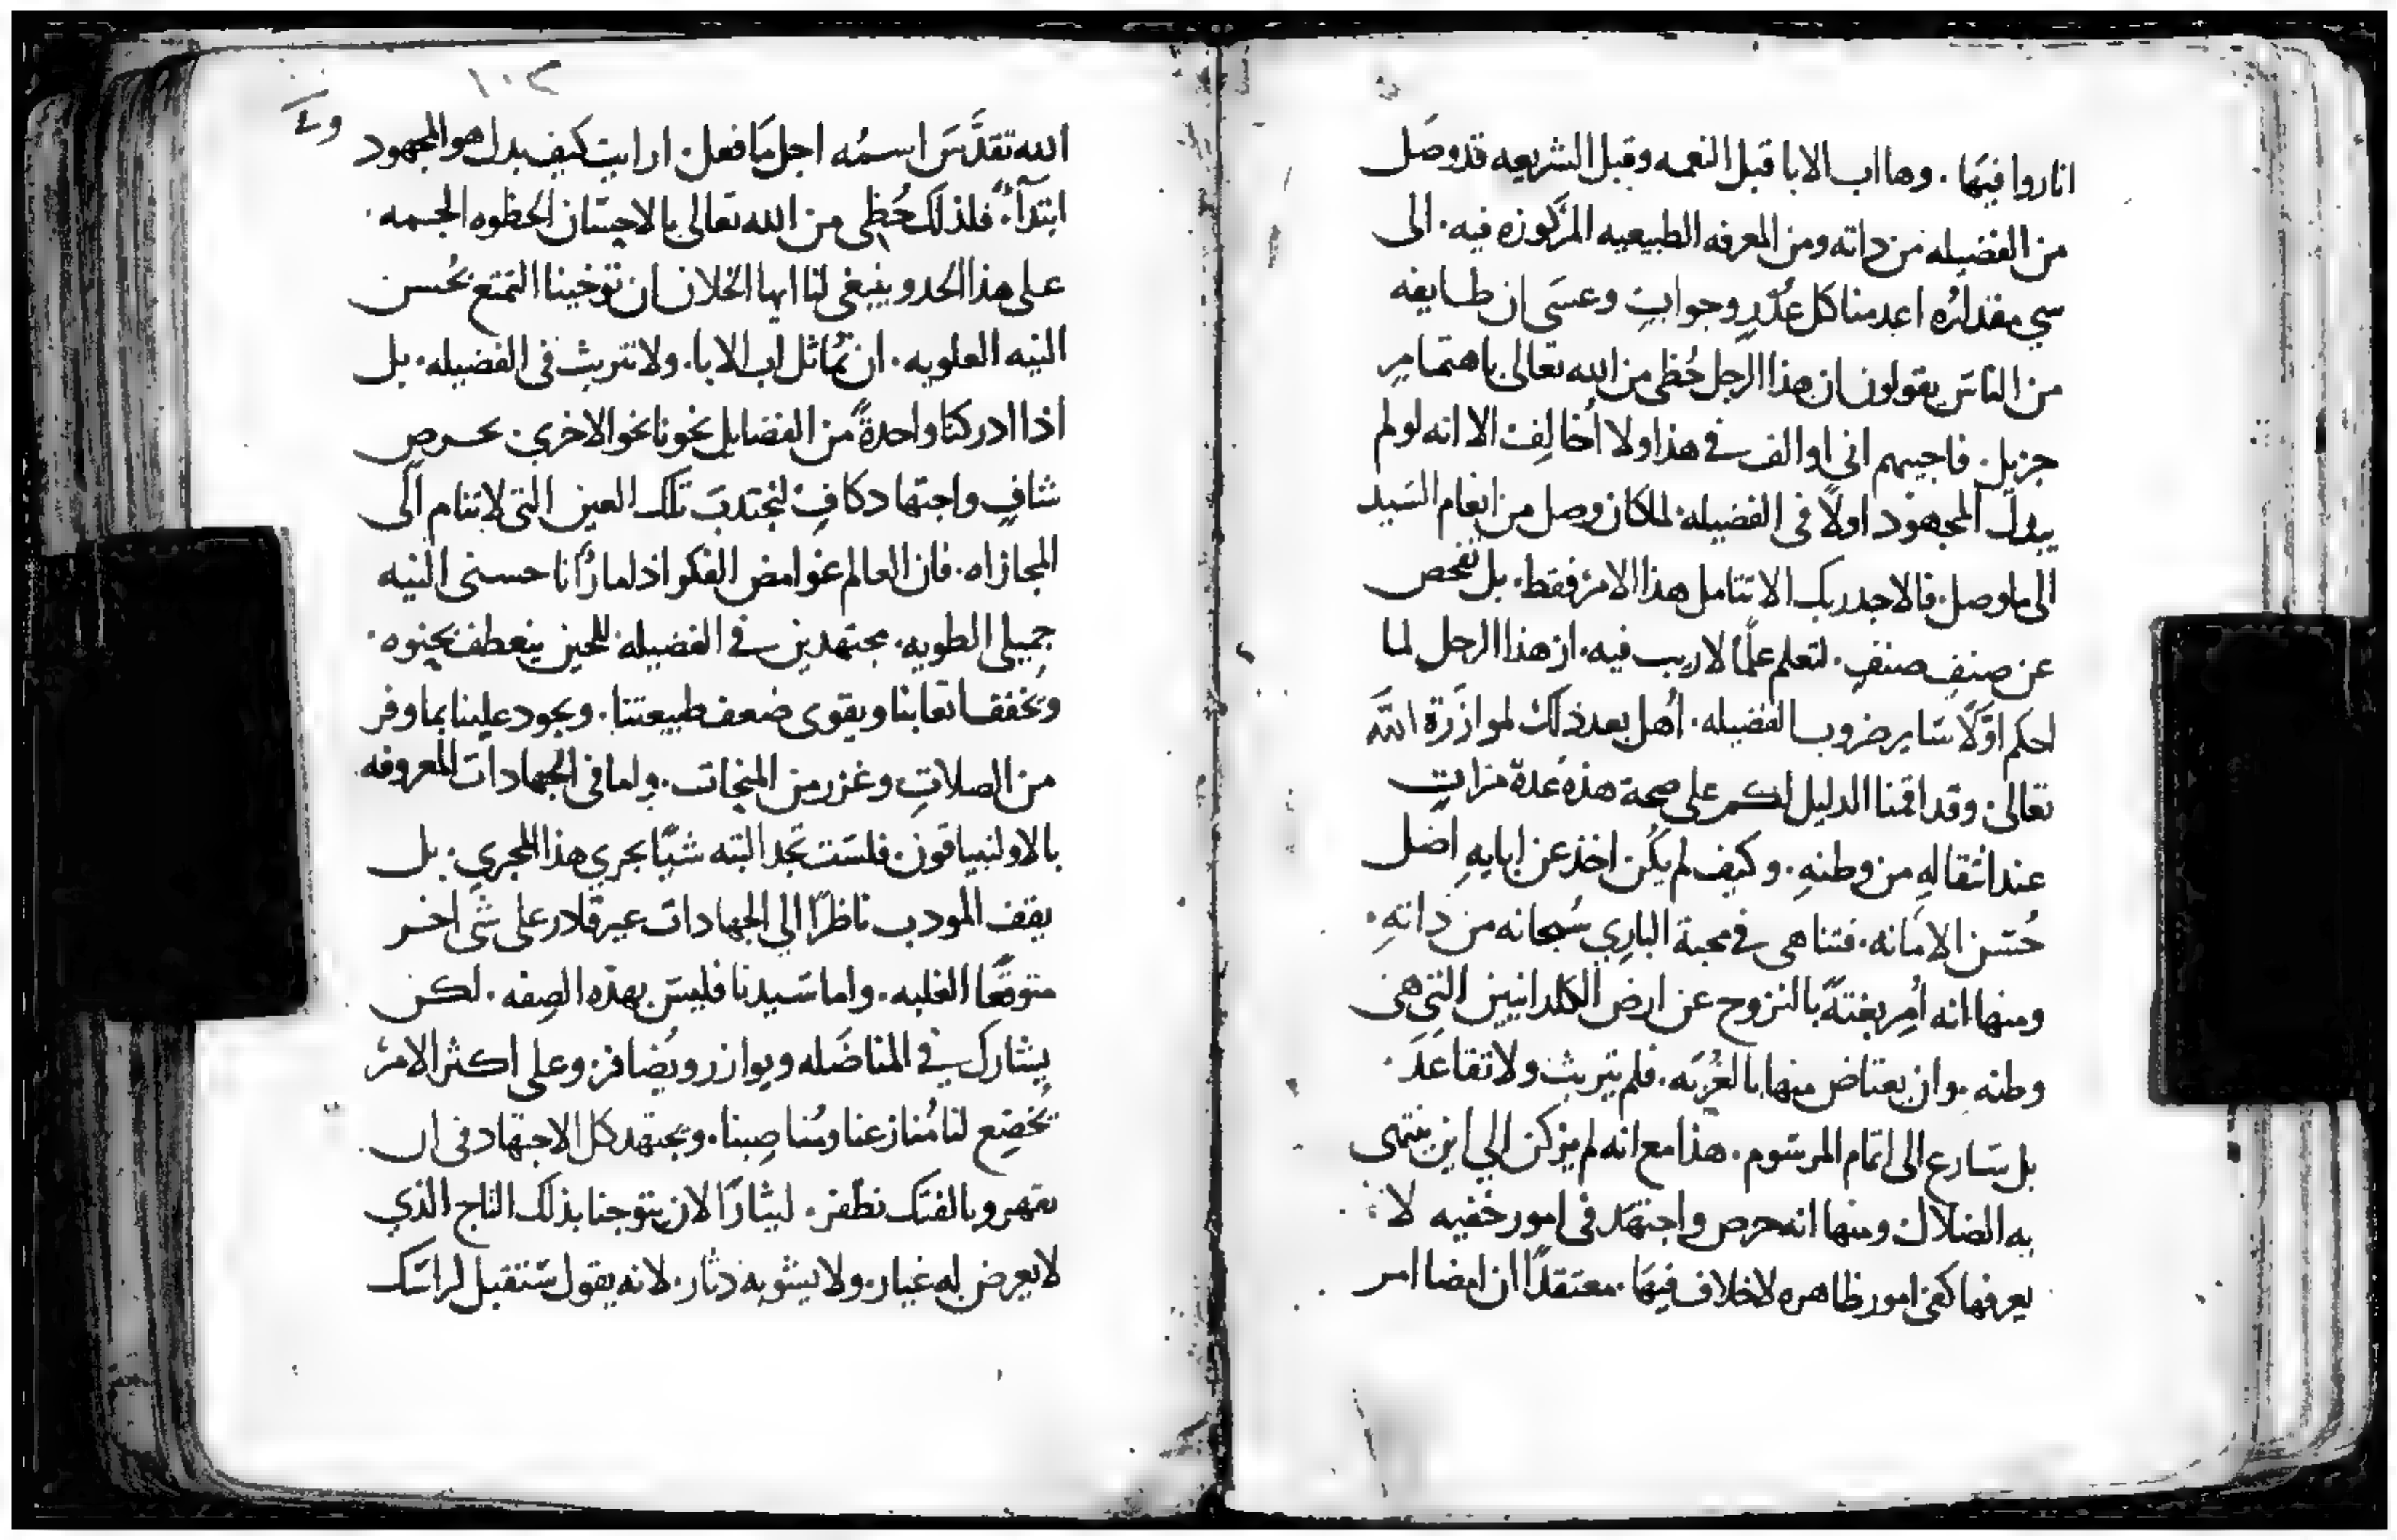 اناروا فيها . وها اب الابا قبل النعمه وقبل الشريعه قد وصل
من الفضيله من داته ومن المعرفه الطبيعيه المركوزه فيه . الى
سي مقداره اعدمنا كل عُدرٍ وجوابٍ وعسَى ان طايفه
من الناسَ يقولون ان هذا الرجل حُظى من الله تعالى باهتمامٍ
جزيل . فاجيبهم انى اوالف في هذا ولا اُخالِف الا انه لو لم
يبدل المجهود اولاً فى الفضيله . لما كان وصل من انعام السَيد
الى ما وصل . فالاجدر بك الا تتامل هذا الامر فقط . بل تفحص
عن صنفٍ صنفٍ . لتعلم علمًا لا ريب فيه . ان هذا الرجل لما
احكم اوَّلاً سَاير ضروب الفضيله . اُهل بعد ذلك لموازَرة الله
تعالى . وقد اقمنا الدليل لكم على صحة هذه عُدة مرَاتٍ
عند انتقالهِ من وطنهِ . وكيف لم يكُن اخذ عن ابايهِ اصل
حُسَن الامَانه . فتناهى في محبة البارى سُبحانه من داتهِ .
ومنها انه اُمِر بغتةً بالنزوح عن ارض الكلدانيين التي هى
وطنه . وان يعتاض منها بالغُربَه . فلم يتريث ولا تقاعَدَ .
بل سَارع الى اتمام المرسَوم . هذا مع انه لم يزكن الي اين ينتهى
به الضلال ومنها انه حرص واجتهَد فى امور خفيه لا
يعرفها كفى امور ظاهره لا خلاف فيها . معتقدًا ان امضا امر
١٠٢
الله تقدَّسَ اسمُه اجل مَا فعل . ارايت كيف بدل هو المجهود
ابتدآءً . فلذلك حُظى من الله تعالى بالاحسَان الحظوه الجمه .
على هذا الحد وينبغى لنا ايها الخلان ان توخينا التمتع بحُسن
النيه العلويه . ان نُماثل اب الابا . ولا نتريث فى الفضيله . بل
اذا ادركنا واحدةً من الفضايل نحونا نحو الاخرى . بحرصٍ
شافٍ واجتهادٍ كافٍ لنجتدبَ تلك العين التى لا تنام الَى
المجازاه . فان العالم غوامض الفكر اذا ما رأنا حسنى النيه
جميلى الطويه . مجتهدين في الفضيله . للحين ينعطف بحنوه .
ويُخفف اتعابنا ويقوى ضعف طبيعتنا . ويجود علينا بما وفر
من الصلاتِ وغزر من المنحات . واما فى الجهادات المعروفه
بالاولنبياقون . فلسَت تجد البته شيًا يجرى هذا المجرى . بل
يقف المودب ناظرًا الي الجهادات غير قادر على شَى اخر
متوقعًا الغلبه . واما سَيدنا فليسَ بهذه الصِفه . لكن
يشَارك في المناضَله ويوازر ويُضافر . وعلى اكثر الامر
يُخضِع لنا مُنازعنا ومُناصِبنا . ويجتهد كل الاجتهاد فى ان
نقهر وبالفتك نظفر . ليثارًا لان يتوجنا بذلك التاج الذي
لا يعرض له غيار . ولا يشوبه دثار . لانه يقول سَتقبل لراسَك